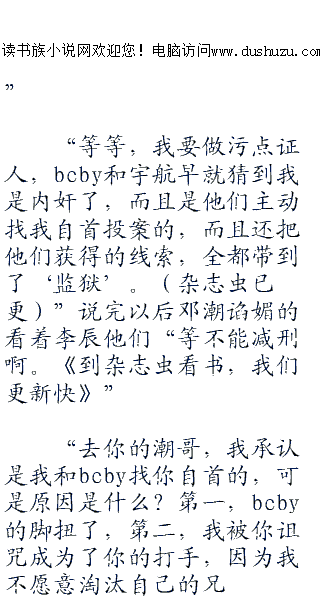 读书族小说网欢迎您！电脑访问www.dushuzu.com
”
“等等，我要做污点证
人，bcby和宇航早就猜到我
是内奸了，而且是他们主动
找我自首投案的，而且还把
他们获得的线索，全都带到
了‘监狱’。（杂志虫已
更）”说完以后邓潮谄媚的
看着李辰他们“等不能减刑
啊。《到杂志虫看书，我们
更新快》”
“去你的潮哥，我承认
是我和bcby找你自首的，可
是原因是什么？第一，bcby
的脚扭了，第二，我被你诅
咒成为了你的打手，因为我
不愿意淘汰自己的兄